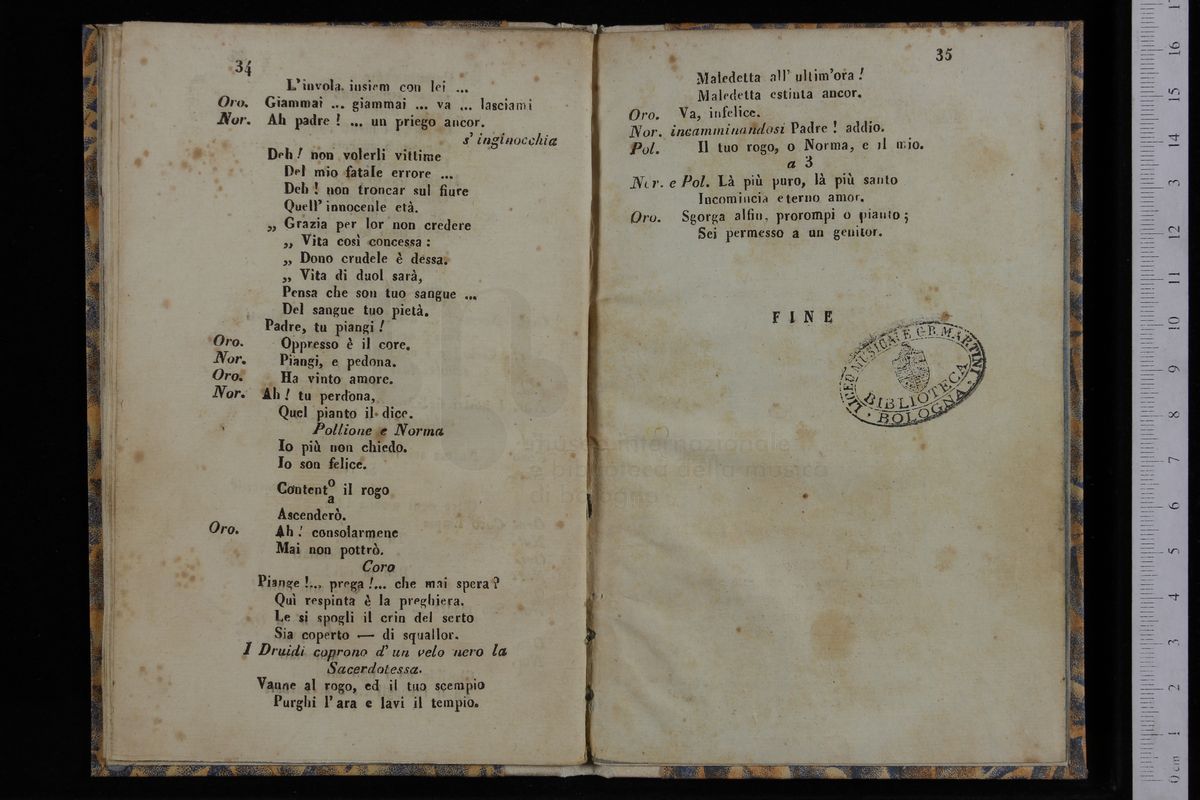 34
L'invola. insiem con lei ...
Oro. Giammai ... giammai ... va ... lasciami
Nor. Ah padre ! ... un priego ancor.
s' inginocchia
Deh ! non volerli vittime
Del mio fatale errore ...
Deh ! non troncar sul fiure
Quell' innocente età.
„ Grazia per lor non credere
„ Vita così concessa :
„ Dono crudele è dessa.
„ Vita di duol sarà,
Pensa che son tuo sangue ...
Del sangue tuo pietà.
Padre, tu piangi !
Oro. Oppresso è il core.
Nor. Piangi, e pedona.
Oro. Ha vinto amore.
Nor. Ah ! tu perdona,
Quel pianto il dice.
Pollione e Norma
Io più non chiedo.
Io son felice.
Content o/a il rogo
Ascenderò.
Oro. Ah ! consolarmene
Mai non pottrò.
Coro
Piange !... prega !... che mai spera ?
Qui respinta è la preghiera.
Le si spogli il crin del serto
Sia coperto — di squallor.
I Druidi coprono d' un velo nero la
Sacerdotessa.
Vanne al rogo, ed il tuo scempio
Purghi l' ara e lavi il tempio.
35
Maledetta all' ultim'ora !
Maledetta estinta ancor.
Oro. Va, infelice.
Nor. incamminandosi Padre ! addio.
Pol. Il tuo rogo, o Norma, e il mio.
a 3
Nor. e Pol. Là più puro, là più santo
Incomincia eterno amor.
Oro. Sgorga alfin, prorompi o pianto ;
Sei permesso a un genitor.
FINE
LICEO MUSICALE G.B. MARTINI
BIBLIOTECA
BOLOGNA
museo internazionale
e biblioteca della musica
di bologna
0 cm 1 2 3 4 5 6 7 8 9 10 11 12 13 14 15 16 17